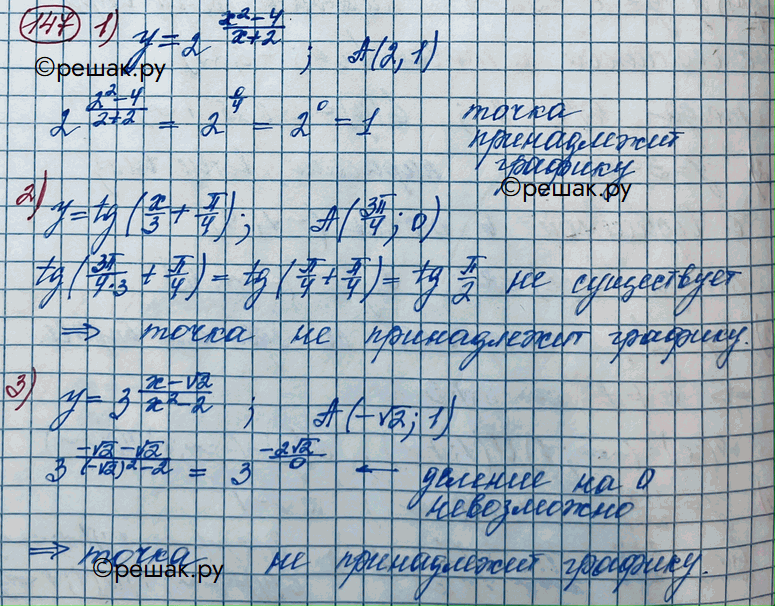 147 1) y = 2^((x²-4)/(x+2)) ; A(2, 1)
©решак.ру
2^((2²-4)/(2+2)) = 2^(0/4) = 2^0 = 1 точка
принадлежит
графику
©решак.ру
2) y = tg(x/3 + π/4); A(3π/4; 0)
tg(3π/(4·3) + π/4) = tg(π/4 + π/4) = tg π/2 не существует
⇒ точка не принадлежит графику.
3) y = 3^((x-√2)/(x²-2)) ; A(-√2; 1)
3^((-√2-√2)/((-√2)²-2)) = 3^(-2√2/0) ← деление на 0
невозможно
⇒ точка не принадлежит графику.
©решак.ру